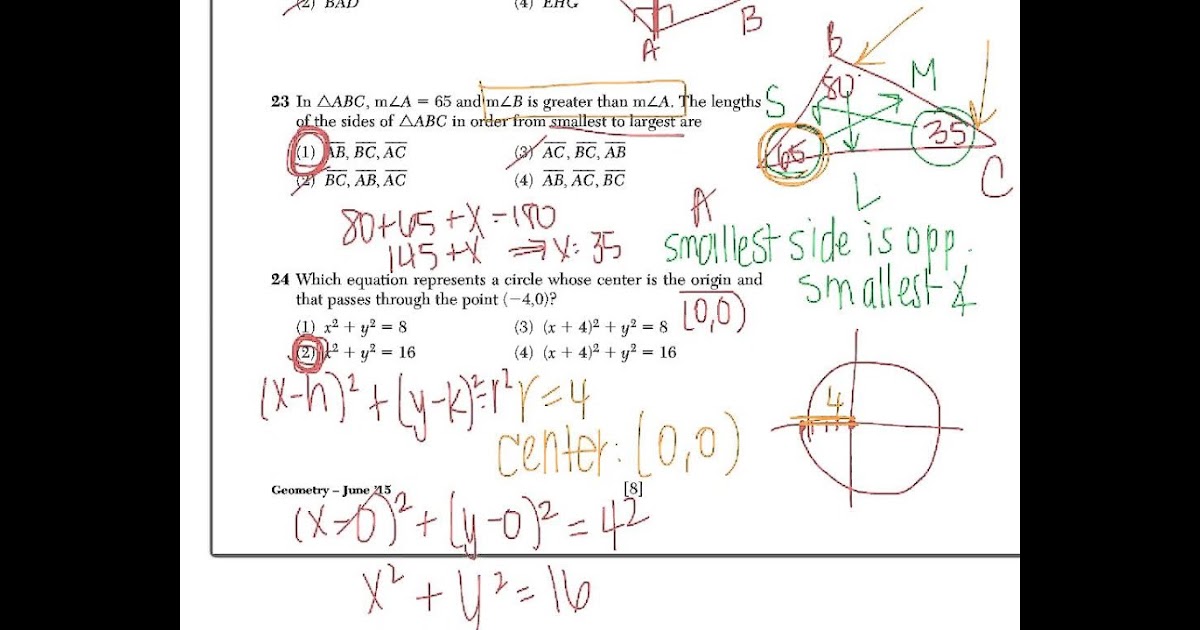 (2) BAD (4) EHG
A
B
23 In △ABC, m∠A = 65 and m∠B is greater than m∠A. The lengths
of the sides of △ABC in order from smallest to largest are
(1) AB, BC, AC (3) AC, BC, AB
(2) BC, AB, AC (4) AB, AC, BC
B
80
S
M
65
35
C
L
A
80+65+x=180
145+x ⇒ x: 35
smallest side is opp.
smallest ∡
24 Which equation represents a circle whose center is the origin and
that passes through the point (−4,0)?
(0,0)
(1) x² + y² = 8 (3) (x + 4)² + y² = 8
(2) x² + y² = 16 (4) (x + 4)² + y² = 16
(x-h)² + (y-k)² = r² r=4
4
center: (0,0)
Geometry – June '15 [8]
(x-0)² + (y-0)² = 4²
x² + y² = 16